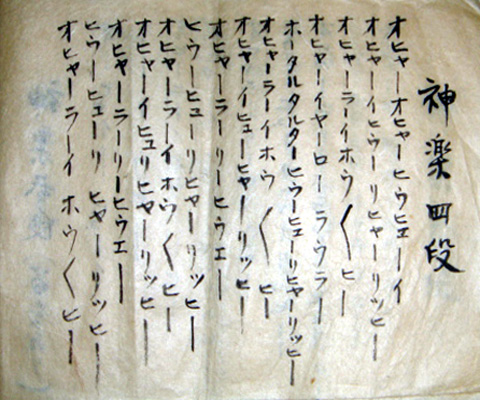 神楽四段
オヒャーオヒャーヒウヒェーイ
オヒャーイヒウーリヒャーリッヒー
オヒャーラーイホウ〱ヒー
オヒャーイヤーローラウラー
ホータルタルターヒウーヒューリヒャーリッヒー
オヒャーラーイホウ〱ヒー
オヒャーイヒューヒャーリッヒー
オヒャーラーリーヒウエー
ヒウーヒューリヒャーリッヒー
オヒャーラーイホウ〱ヒー
オヒャーイヒュリヒャーリッヒー
オヒャーラーリーヒウエー
ヒウーヒューリ ヒャーリッヒー
オヒャーラーイ ホウ〱ヒー